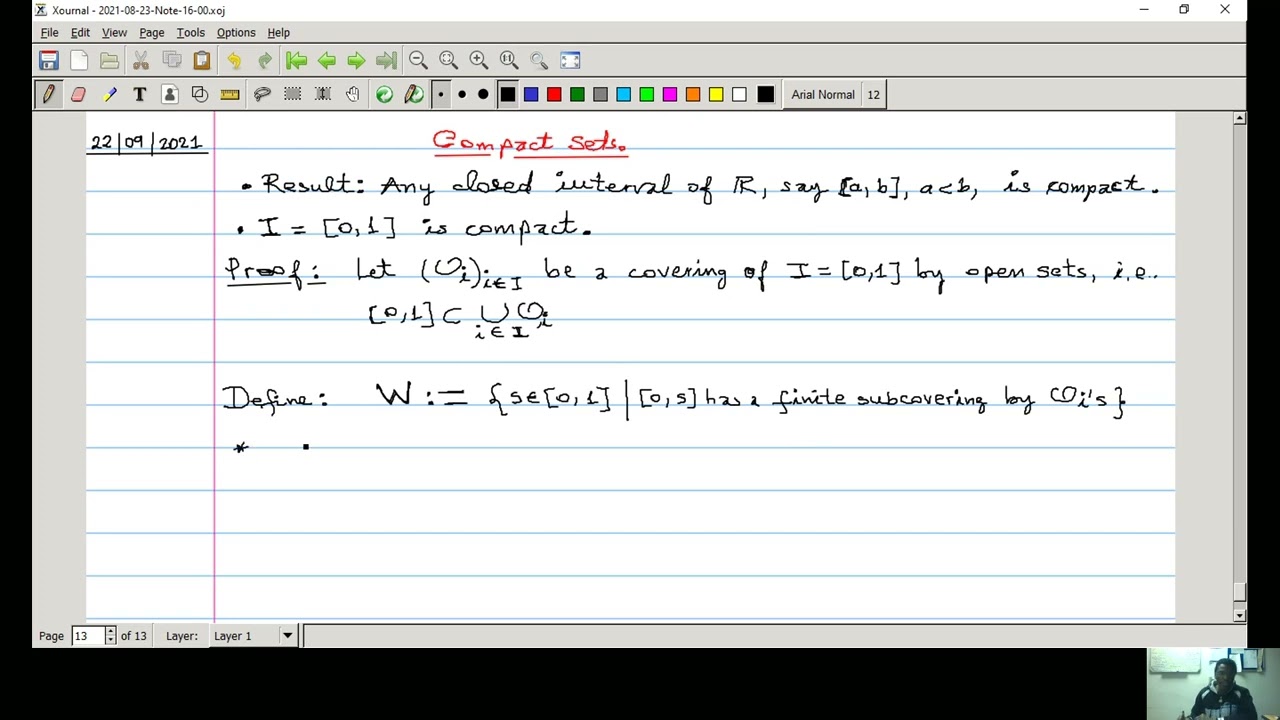 Xournal - 2021-08-23-Note-16-00.xoj
File Edit View Page Tools Options Help
Arial Normal 12
22|09|2021
Compact Sets.
• Result: Any closed interval of ℝ, say [a, b], a<b, is compact.
• I = [0,1] is compact.
Proof: Let (O_i)_{i∈I} be a covering of I = [0,1] by open sets, i.e.
[0,1] ⊂ ∪_{i∈I} O_i
Define: W := {s∈[0,1] | [0,s] has a finite subcovering by O_i's}
*
Page 13 of 13 Layer: Layer 1